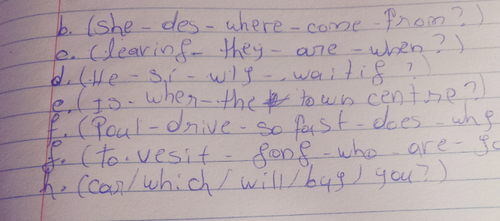 b. (she - des - where - come - from?)
c. (learing - they - are - when?)
d. (He - si - why - waitig?)
e. (Is - wher - the town centre?)
f. (Poul - drive - so fast - does - why
g. (to. vesit - gong - who - are - yo
h. (car/which/will/buy/you?)